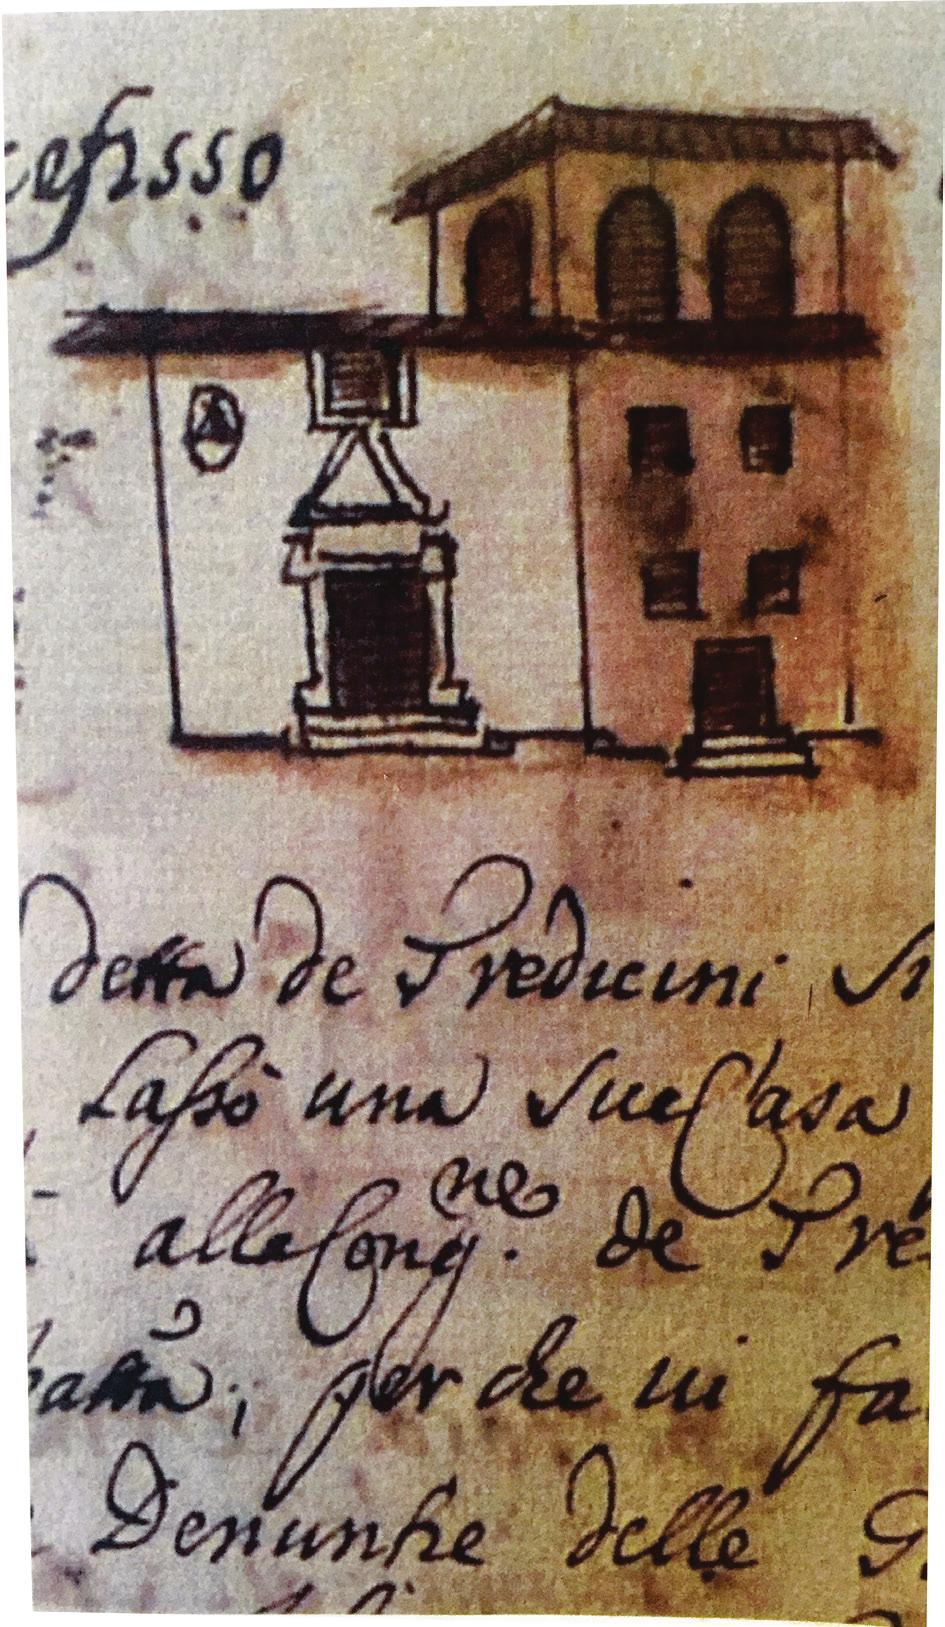 cefisso
detta de Predicini Si
Lassò una sua Casa
alla Cong.ne de Pre
batta; per che ui fa
Denuntie delle G